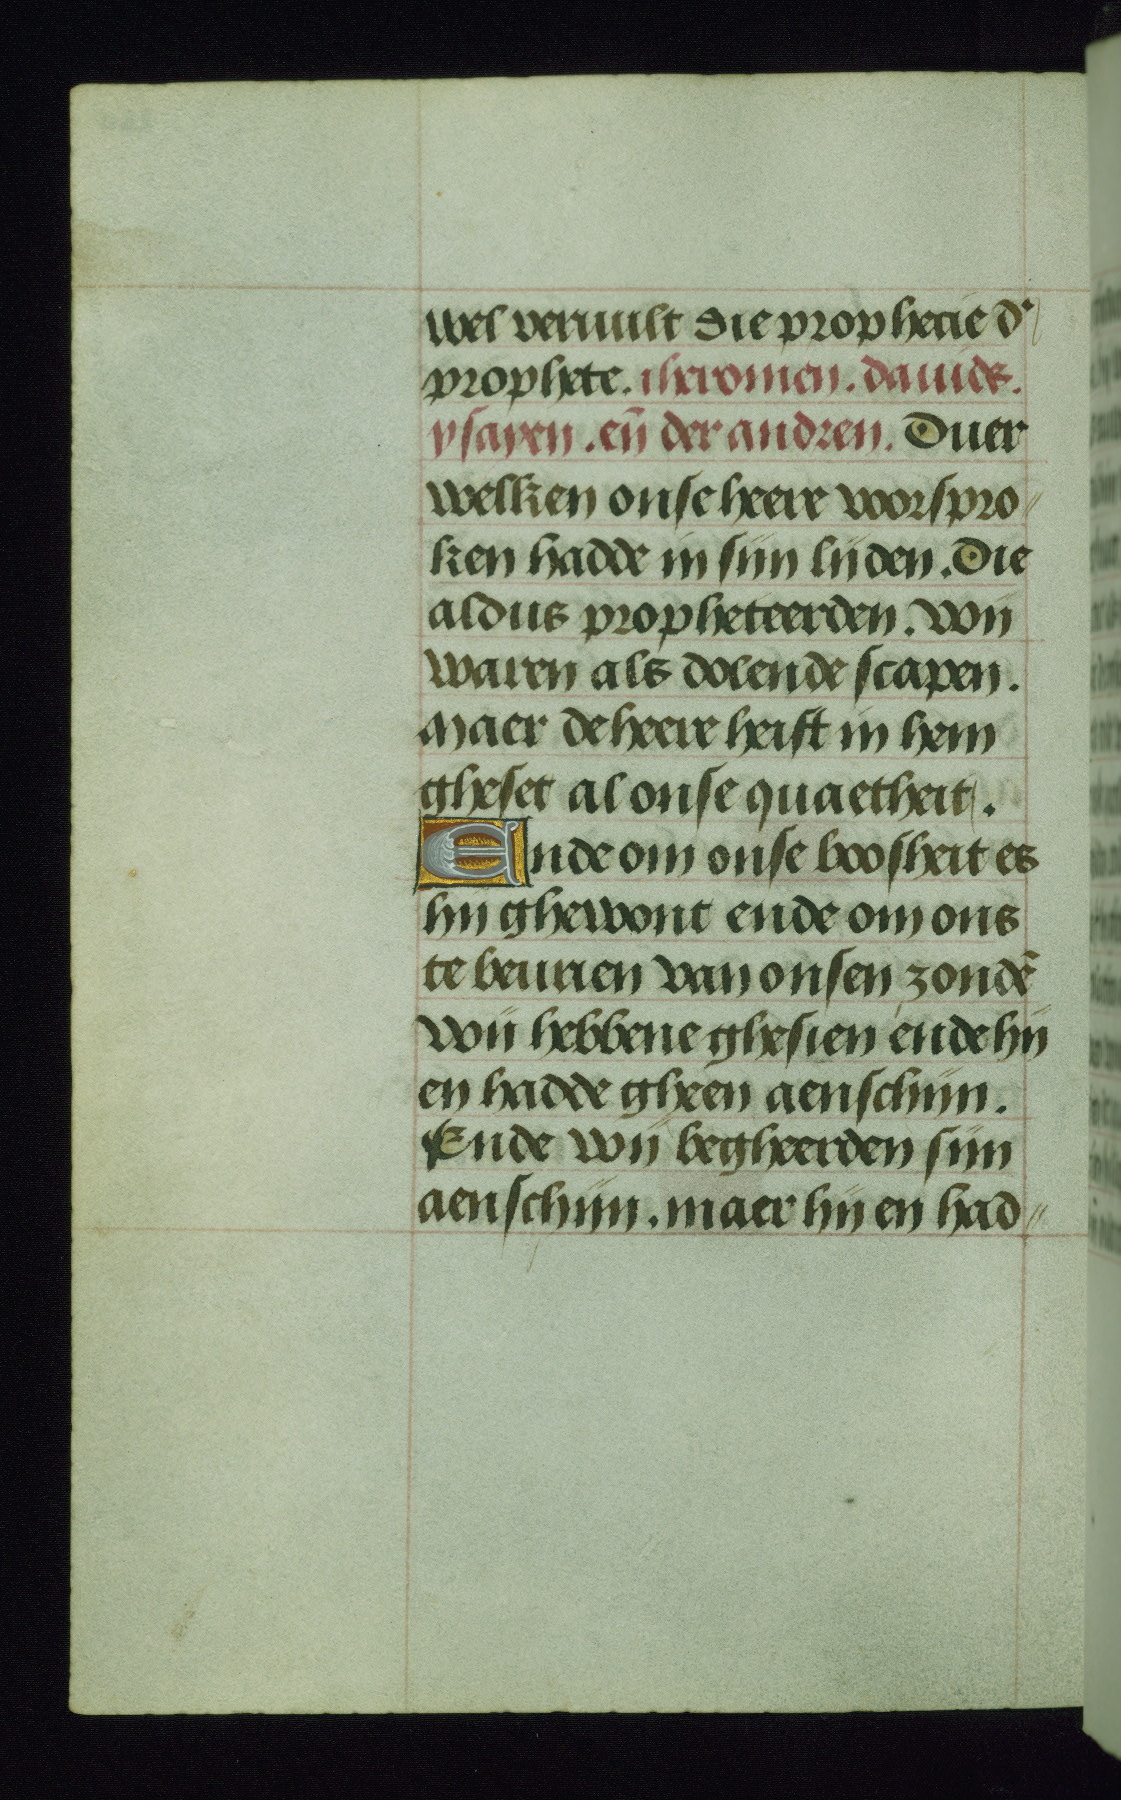 wel veruult die prophecie d'
prophete. iheromen. dauids.
ysayen. eñ der andren. Duer
welken onse heere voorspro//
ken hadde in sijn lijden. Die
aldus propheteerden. Wij
waren als dolende scapen.
Maer de heere heift in hem
gheset al onse quaetheit.
Ende om onse boosheit es
hij ghewont ende om ons
te beurien van onsen zondē
Wij hebbene ghesien ende hij
en hadde gheen aenschijn.
Ende wij begheerden sijn
aenschijn. maer hij en had//